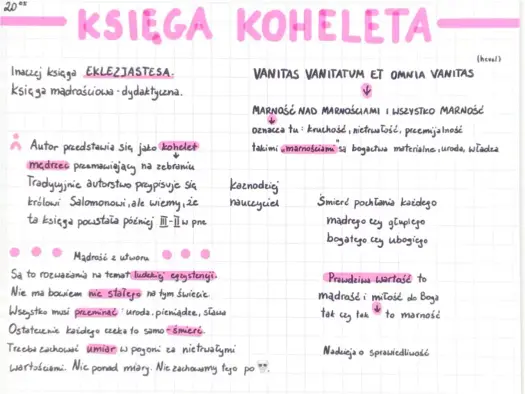 20
KSIĘGA KOHELETA
Inaczej księga EKLEZJASTESA.
księga mądrościowa - dydaktyczna.
(hevel)
VANITAS VANITATUM ET OMNIA VANITAS
MARNOŚĆ NAD MARNOŚCIAMI I WSZYSTKO MARNOŚĆ
oznacza tu: kruchość, nietrwałość, przemijalność
takimi "marnościami" są bogactwa materialne, uroda, władza
Autor przedstawia się jako kohelet
mędrzec przemawiający na zebraniu
Tradycyjnie autorstwo przypisuje się
królowi Salomonowi, ale wiemy, że
ta księga powstała później III-II w pne
kaznodziej
nauczyciel
Śmierć pochłania każdego
mądrego czy głupiego
bogatego czy ubogiego
Mądrość z utworu
Są to rozważania na temat ludzkiej egzystencji.
Nie ma bowiem nic stałego na tym świecie
Wszystko musi przeminąć: uroda, pieniądze, sława
Ostatecznie każdego czeka to samo - śmierć.
Trzeba zachować umiar w pogoni za nietrwałymi
wartościami. Nic ponad miarę. Nie zachowamy tego po
Prawdziwa wartość to
mądrość i miłość do Boga
tak czy tak to marność
Nadzieja o sprawiedliwość